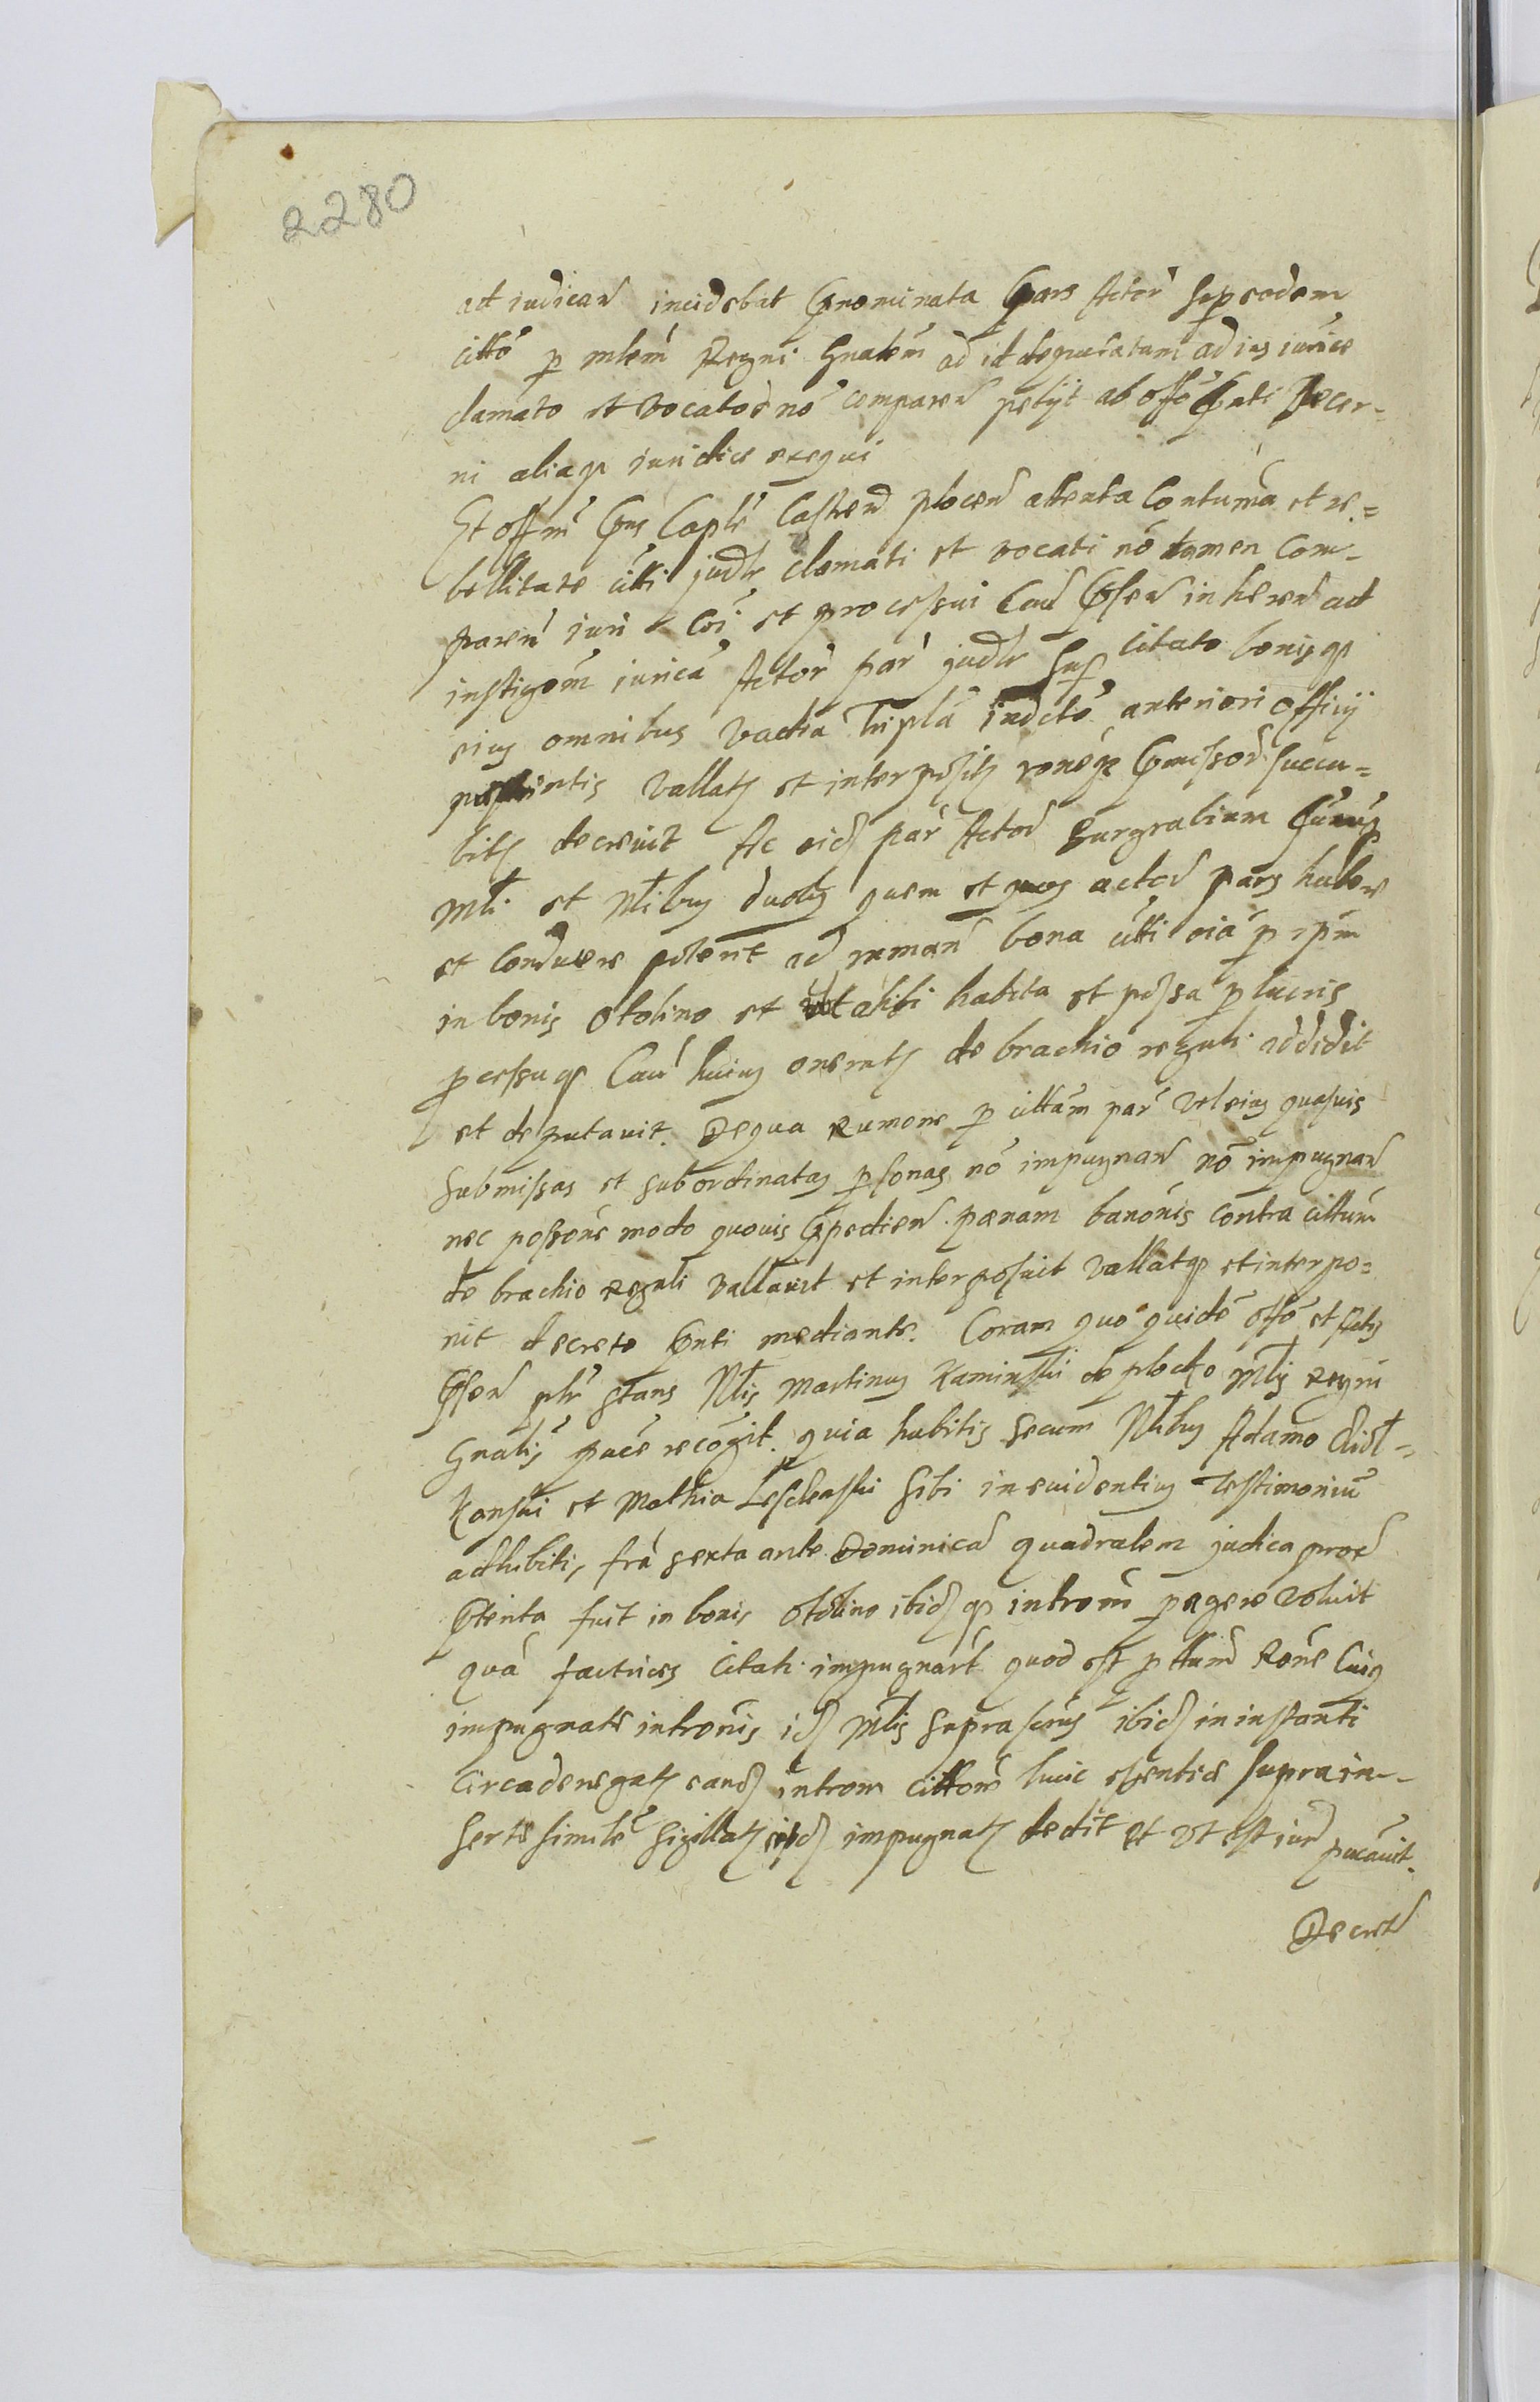 2280
ad iudican incidebat Pnominata Pars Actor Sup eodem
citto p mlem Regni Gnalem ad id deputatum ad ius iurice
clamato et vocato no comparen petijt ab offo Pnti Decer-
ni aliaq iuridice exequi
Et offm Pns Caple Castren plocen attenta Contuma et re=
bellitate citti judlr clamati et vocati no tamen Com-
paren iuri Coi et processui Cau Pnsen inheren ad
instigom iurica Actor par judlr Sup Citato bonisq
eius omnibus vadia tripla indcto anteriori officij
vallatz et interpositz roneq Pmissor succu=
bitz decreuit Ac eid par Actor Burgrabium
Mli et Nlibus duobus quem et quos actor pars habere
et Conducere poterit ad reman bona citti oia p ipm
in bonis Otolino et alibi habita et possa p lucris
pcessuq Cau huius oneratz de brachio regali addidit
et deputauit. De qua Rumone p cittam par vel eius quasuis
submissas et subordinatas psonas no impugnan no impugnan
nec possone modo quouis Ppedien pænam banonis contra cittum
de brachio regali vallauit et interposuit vallatq et interpo=
nit decreto Pnti mediante. Coram quo quide offo et actis
Pnsen plr stans Nlis Martinus Kaminski de plocko Mlis Regni
Gnalis pace recogit. quia habitis secum Nlibus Adamo
kanski et Mathia sibi in euidentius testimoniu
adhibitis, fra sexta ante Dominica quadralem judica prox
Pterita fuit in bonis Otolino ibidq introm pagere voluit
qua factrices Citati impugnart quod est p ttum Rone Cuius
impugnate intronis id Mlis suprascrus ibid in instanti
Circa denegatz eand introm cittom huic sentie supra in-
serte simile sigillatz impugnatz dedit et vt est iur pucauit.
Decret